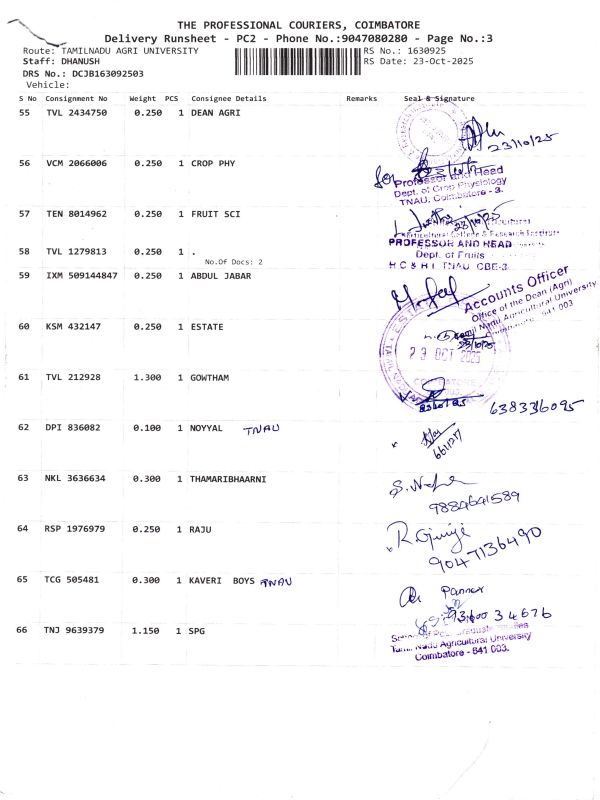 THE PROFESSIONAL COURIERS, COIMBATORE
Delivery Runsheet - PC2 - Phone No.:9047080280 - Page No.:3
Route: TAMILNADU AGRI UNIVERSITY RS No.: 1630925
Staff: DHANUSH RS Date: 23-Oct-2025
DRS No.: DCJB163092503
Vehicle:
S No Consignment No Weight PCS Consignee Details Remarks Seal & Signature
55 TVL 2434750 0.250 1 DEAN AGRI
23/10/25
56 VCM 2066006 0.250 1 CROP PHY
for
Professor and Head
Dept. of Crop Physiology
TNAU, Coimbatore - 3.
57 TEN 8014962 0.250 1 FRUIT SCI
23/10/25
Horticultural College & Research Institute
PROFESSOR AND HEAD
58 TVL 1279813 0.250 1 .
Dept. of Fruits
No.Of Docs: 2
H C & R I TNAU CBE-3
59 IXM 509144847 0.250 1 ABDUL JABAR
Accounts Officer
Office of the Dean (Agri)
Tamil Nadu Agricultural University
Coimbatore - 641 003
60 KSM 432147 0.250 1 ESTATE
23/10/25
23 OCT 2025
61 TVL 212928 1.300 1 GOWTHAM
COIMBATORE
23/10/25
638336095
62 DPI 836082 0.100 1 NOYYAL TNAU
63 NKL 3636634 0.300 1 THAMARIBHAARNI
9884641589
64 RSP 1976979 0.250 1 RAJU
9047136490
65 TCG 505481 0.300 1 KAVERI BOYS TNAU
66 TNJ 9639379 1.150 1 SPG
School of Post Graduate Studies
Tamil Nadu Agricultural University
Coimbatore - 641 003.